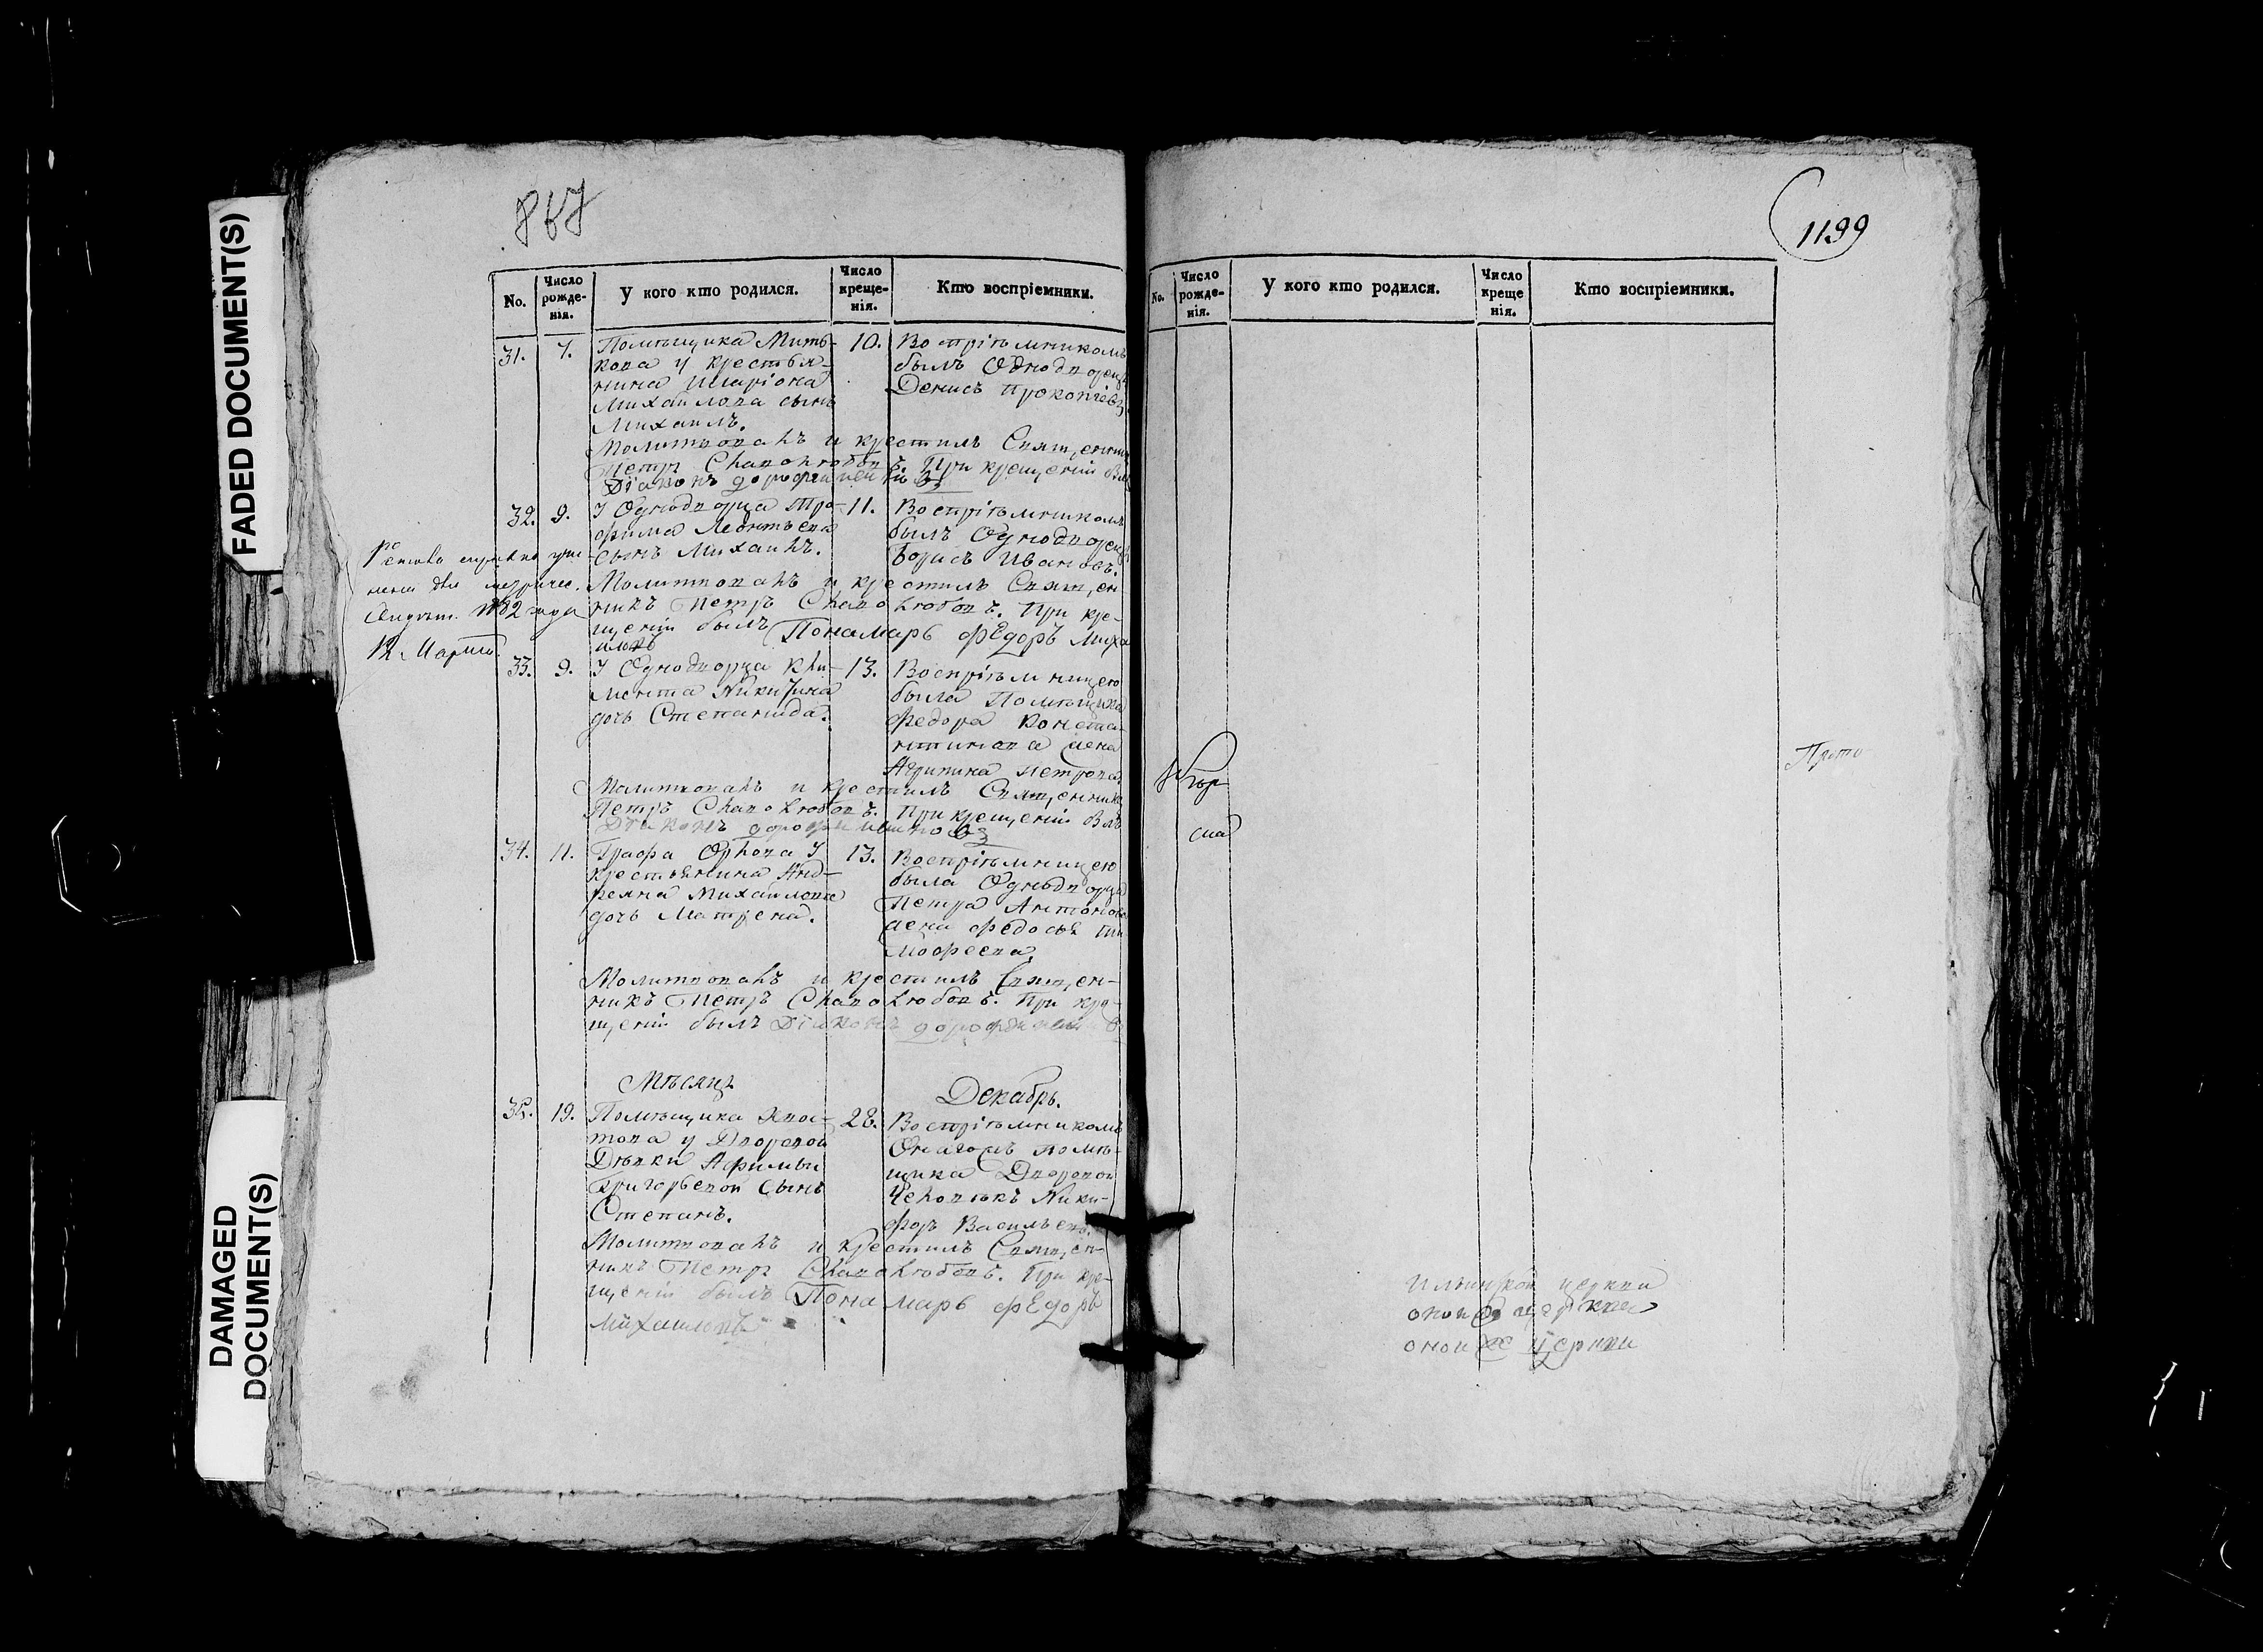 FADED DOCUMENT(S)
DAMAGED
DOCUMENT(S)
867
No.
Число
рожде-
нія.
У кого кто родился.
Число
креще-
нія.
Кто воспріемники.
31. 7. Помѣщика Мить-
кова у крестья-
нина Иларіона
Михаилова сынъ
Михаилъ.
10. Воспріѣмникомъ
былъ Однодворецъ
Денисъ Прокопіевъ
Молитвовалъ и крестилъ Священни
Петръ Словолюбовъ. При крещеніи былъ
Діаконъ
32. 9. У Однодворца Тро-
фима Леонтьева
сынъ Михаилъ.
11. Воспріѣмникомъ
былъ Однодворецъ
Борисъ Ивановъ.
Молитвовалъ и крестилъ Священ
никъ Петръ Словолюбовъ. При кре-
щеніи былъ Понамарь Федоръ Миха
иловъ
12 Марта.
33. 9. У Однодворца Кли-
мента Никитина
дочь Степанида.
13. Воспріѣмницею
была Помѣщика
Федора Конста-
нтинова жена
Агрипина Петрова
Молитвовалъ и крестилъ Священникъ
Петръ Словолюбовъ. При крещеніи былъ
Діаконъ
34. 11. Графа Орлова У
крестьянина Анд-
реяна Михаилова
дочь Матрена.
13. Воспріѣмницею
была Однодворца
Петра Антонова
жена Федосья Ти
мофеева.
Молитвовалъ и крестилъ Священ-
никъ Петръ Словолюбовъ. При кре-
щеніи былъ Діаконъ
Мѣсяцъ Декабрь.
35. 19. Помѣщика Хвос-
това у Дворовой
Дѣвки Афимьи
Григорьевой сынъ
Степанъ.
28. Воспріѣмникомъ
Онагожъ помѣ-
щика Дворовой
Человѣкъ Ники-
форъ Васильевъ.
Молитвовалъ и крестилъ Священ-
никъ Петръ Словолюбовъ. При кре-
щеніи былъ Понамарь Федоръ
Михаиловъ
1199
No.
Число
рожде-
нія.
У кого кто родился.
Число
креще
нія.
Кто воспріемники.
Прото
Ильинской церкви
оной же церкви
оной же церкви